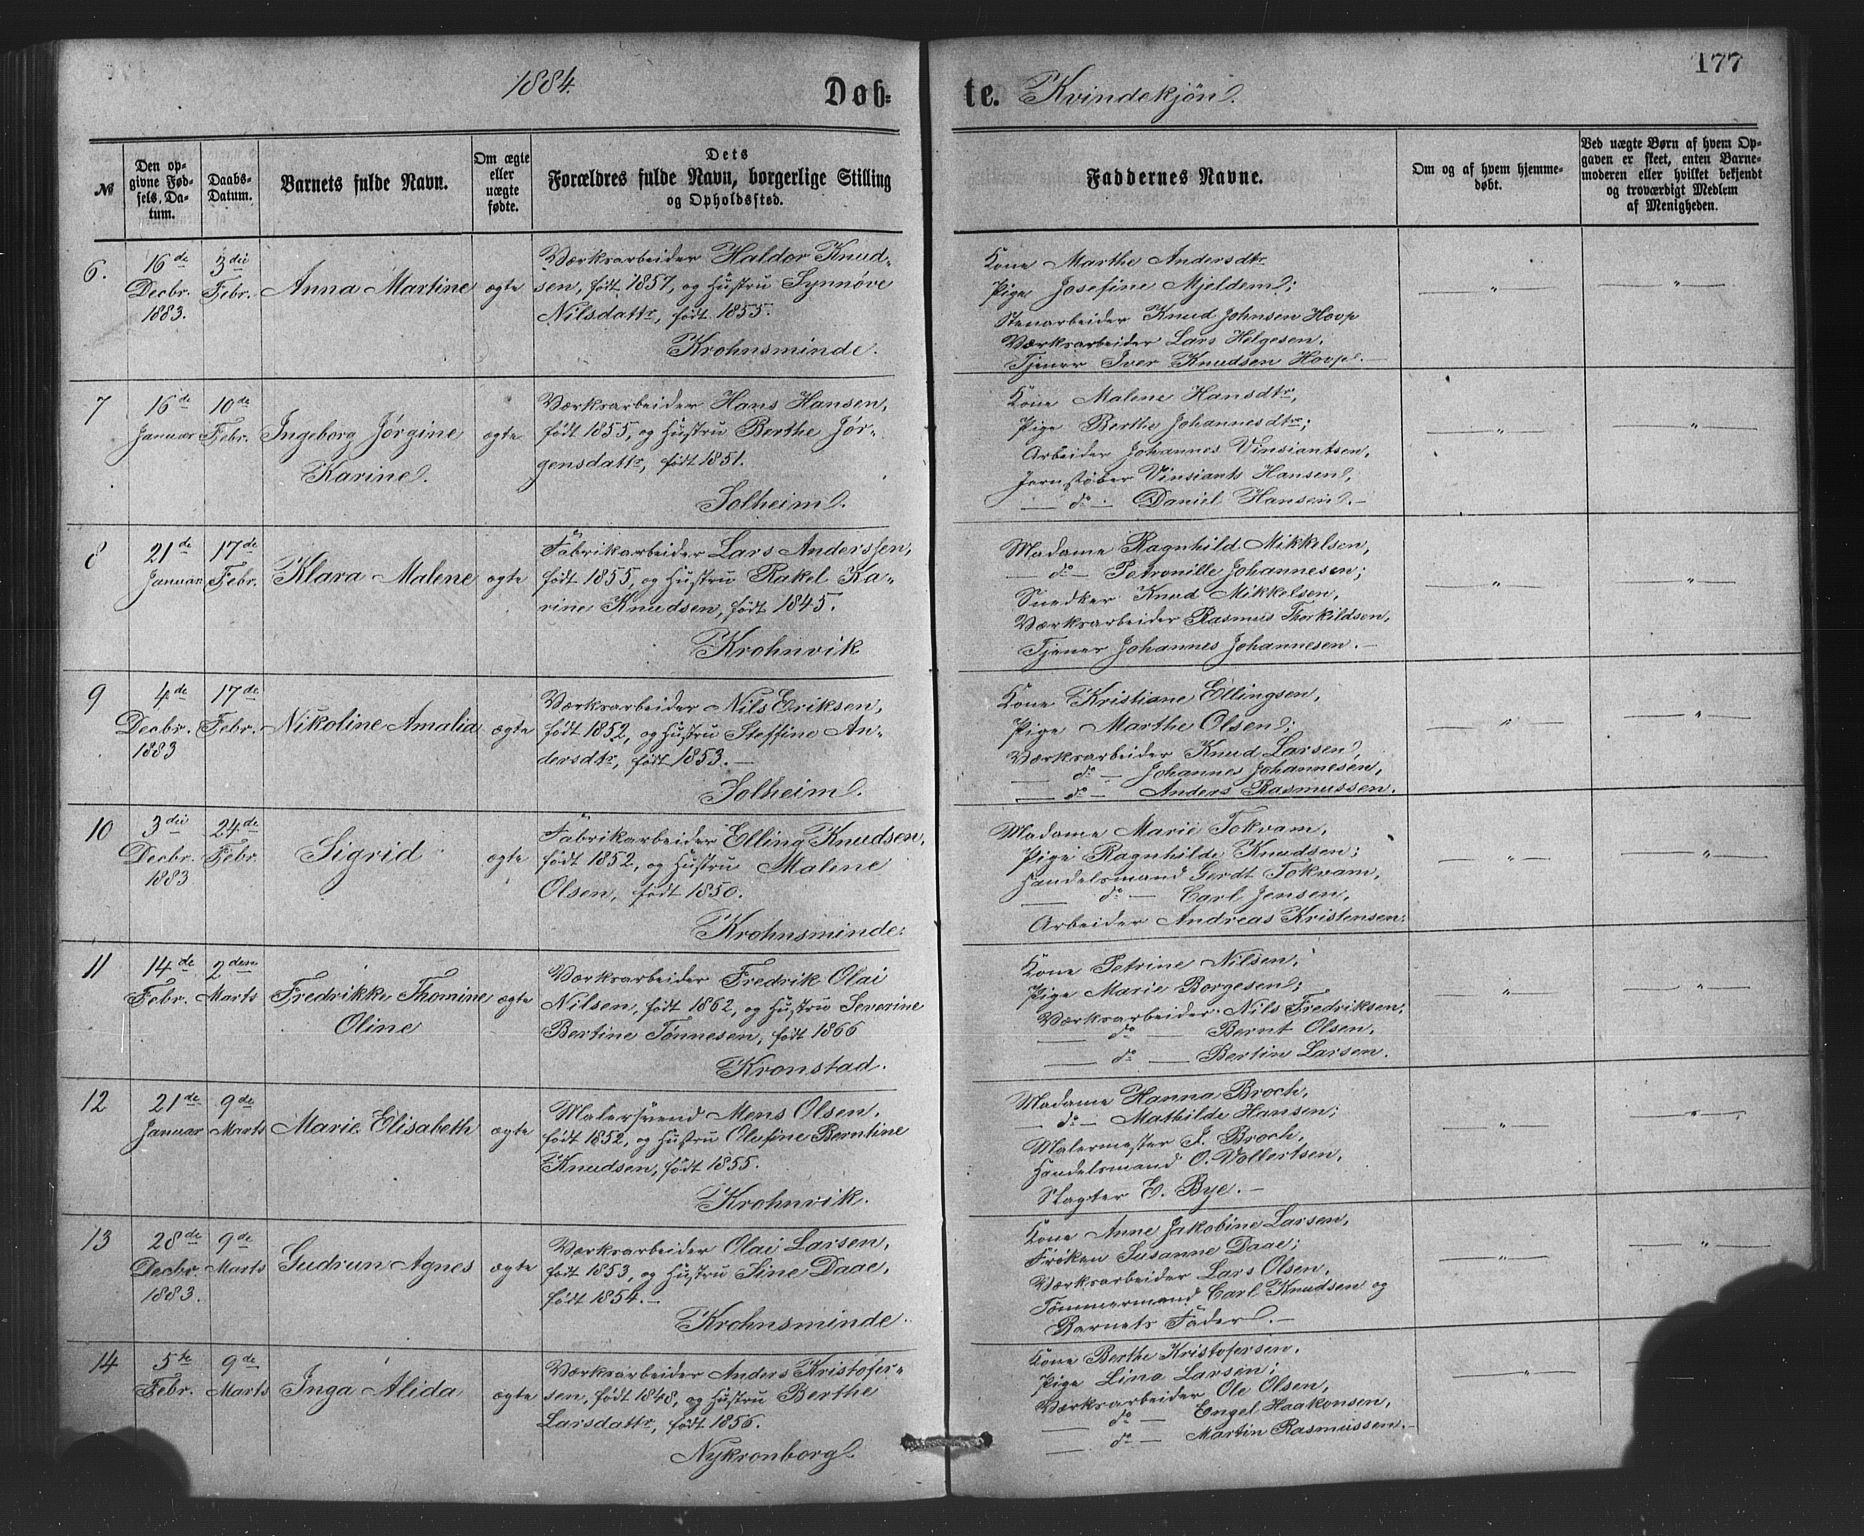 1884.
Døb-
te. Kvindekjøn.
177
№
Den op-
givne Fød-
sels-Da-
tum.
Daabs-
Datum.
Barnets fulde Navn.
Om ægte
eller
uægte
fødte.
Dets
Forældres fulde Navn, borgerlige Stilling
og Opholdssted.
Faddernes Navne.
Om og af hvem hjemme-
døbt.
Ved uægte Børn af hvem Op-
gaven er skeet, enten Barne-
moderen eller hvilket bekjendt
og troværdigt Medlem
af Menigheden.
6.
16de
Decbr.
1883.
3die
Febr.
Anna Martine
ægte
Værksarbeider Haldor Knud-
sen, født 1857, og Hustru Synnøve
Nilsdattr, født 1855.
Krohnsminde.
Kone Marthe Andersdtr.
Pige Josefine Mjeldem;
Stenarbeider Knud Johnsen Hovp
Værksarbeider Lars Helgesen,
Tjener Iver Knudsen Hovp. —
— " —
— " —
7
16de
Januar
10de
Febr.
Ingeborg Jørgine
Karine.
ægte
Værksarbeider Hans Hansen,
født 1855, og Hustru Berthe Jør-
gensdattr, født 1851.
Solheim.
Kone Malene Hansdtr,
Pige Berthe Johannesdtr;
Arbeider Johannes Vinsiantsen,
Jernstøber Vinsiants Hansen,
— do — Daniel Hansen. —
— " —
— " —
8
21de
Januar
17de
Febr.
Klara Malene
ægte
Fabrikarbeider Lars Anderssen,
født 1855, og Hustru Rakel Ka-
rine Knudsen, født 1845.
Krohnvik
Madame Ragnhild Mikkelsen,
— do — Petronille Johannesen;
Snedker Knud Mikkelsen,
Værksarbeider Rasmus Thorkildsen,
Tjener Johannes Johannesen. —
— " —
— " —
9
4de
Decbr.
1883
17de
Febr.
Nikoline Amalia
ægte
Værksarbeider Nils Eriksen,
født 1852, og Hustru Steffine An-
dersdtr, født 1853. —
Solheim.
Kone Kristiane Ellingsen,
Pige Marthe Olsen;
Værksarbeider Knud Larsen,
— do — Johannes Johannesen,
— do — Anders Rasmussen.
— " —
— " —
10
3die
Decbr.
1883
24de
Febr.
Sigrid
ægte
Fabrikarbeider Elling Knudsen,
født 1852, og Hustru Malene
Olsen, født 1850.
Krohnsminde.
Madame Marie Tokvam,
Pige Ragnhilde Knudsen;
Handelsmand Gerdt Tokvam,
— do — Carl Jensen,
Arbeider Andreas Kristensen.
— " —
— " —
11
14de
Febr.
2den
Marts
Fredrikke Thomine
Oline
ægte
Værksarbeider Fredrik Olai
Nilsen, født 1862, og Hustru Severine
Bertine Tønnesen, født 1866
Kronstad.
Kone Petrine Nilsen,
Pige Marie Borgesen;
Værksarbeider Nils Fredriksen,
— do — Bernt Olsen,
— do — Bertin Larsen.
— " —
— " —
12
21de
Januar
9de
Marts
Marie Elisabeth
ægte
Malersvend Mons Olsen,
født 1852, og Hustru Olufine Berntine
Knudsen, født 1855.
Krohnvik.
Madame Hanna Broch,
— do — Mathilde Hansen;
Malermester J. Broch,
Handelsmand O. Volbertsen,
Slagter E. Bye. —
— " —
— " —
13
28de
Decbr.
1883.
9de
Marts
Gudrun Agnes
ægte
Værksarbeider Olai Larsen,
født 1853, og Hustru Sine Daae,
født 1854. —
Krohnsminde.
Kone Anne Jakobine Larsen,
Frøken Susanne Daae;
Værksarbeider Lars Olsen,
Tømmermand Carl Knudsen og
Barnets Fader. —
— " —
— " —
14
5te
Febr.
9de
Marts
Inga Alida
ægte
Værksarbeider Anders Kristofer-
sen, født 1848, og Hustru Berthe
Larsdattr, født 1856.
Nykronborg.
Kone Berthe Kristofersen,
Pige Lina Larsen;
Værksarbeider Ole Olsen,
— do — Engel Haakonsen,
— do — Martin Rasmussen. —
— " —